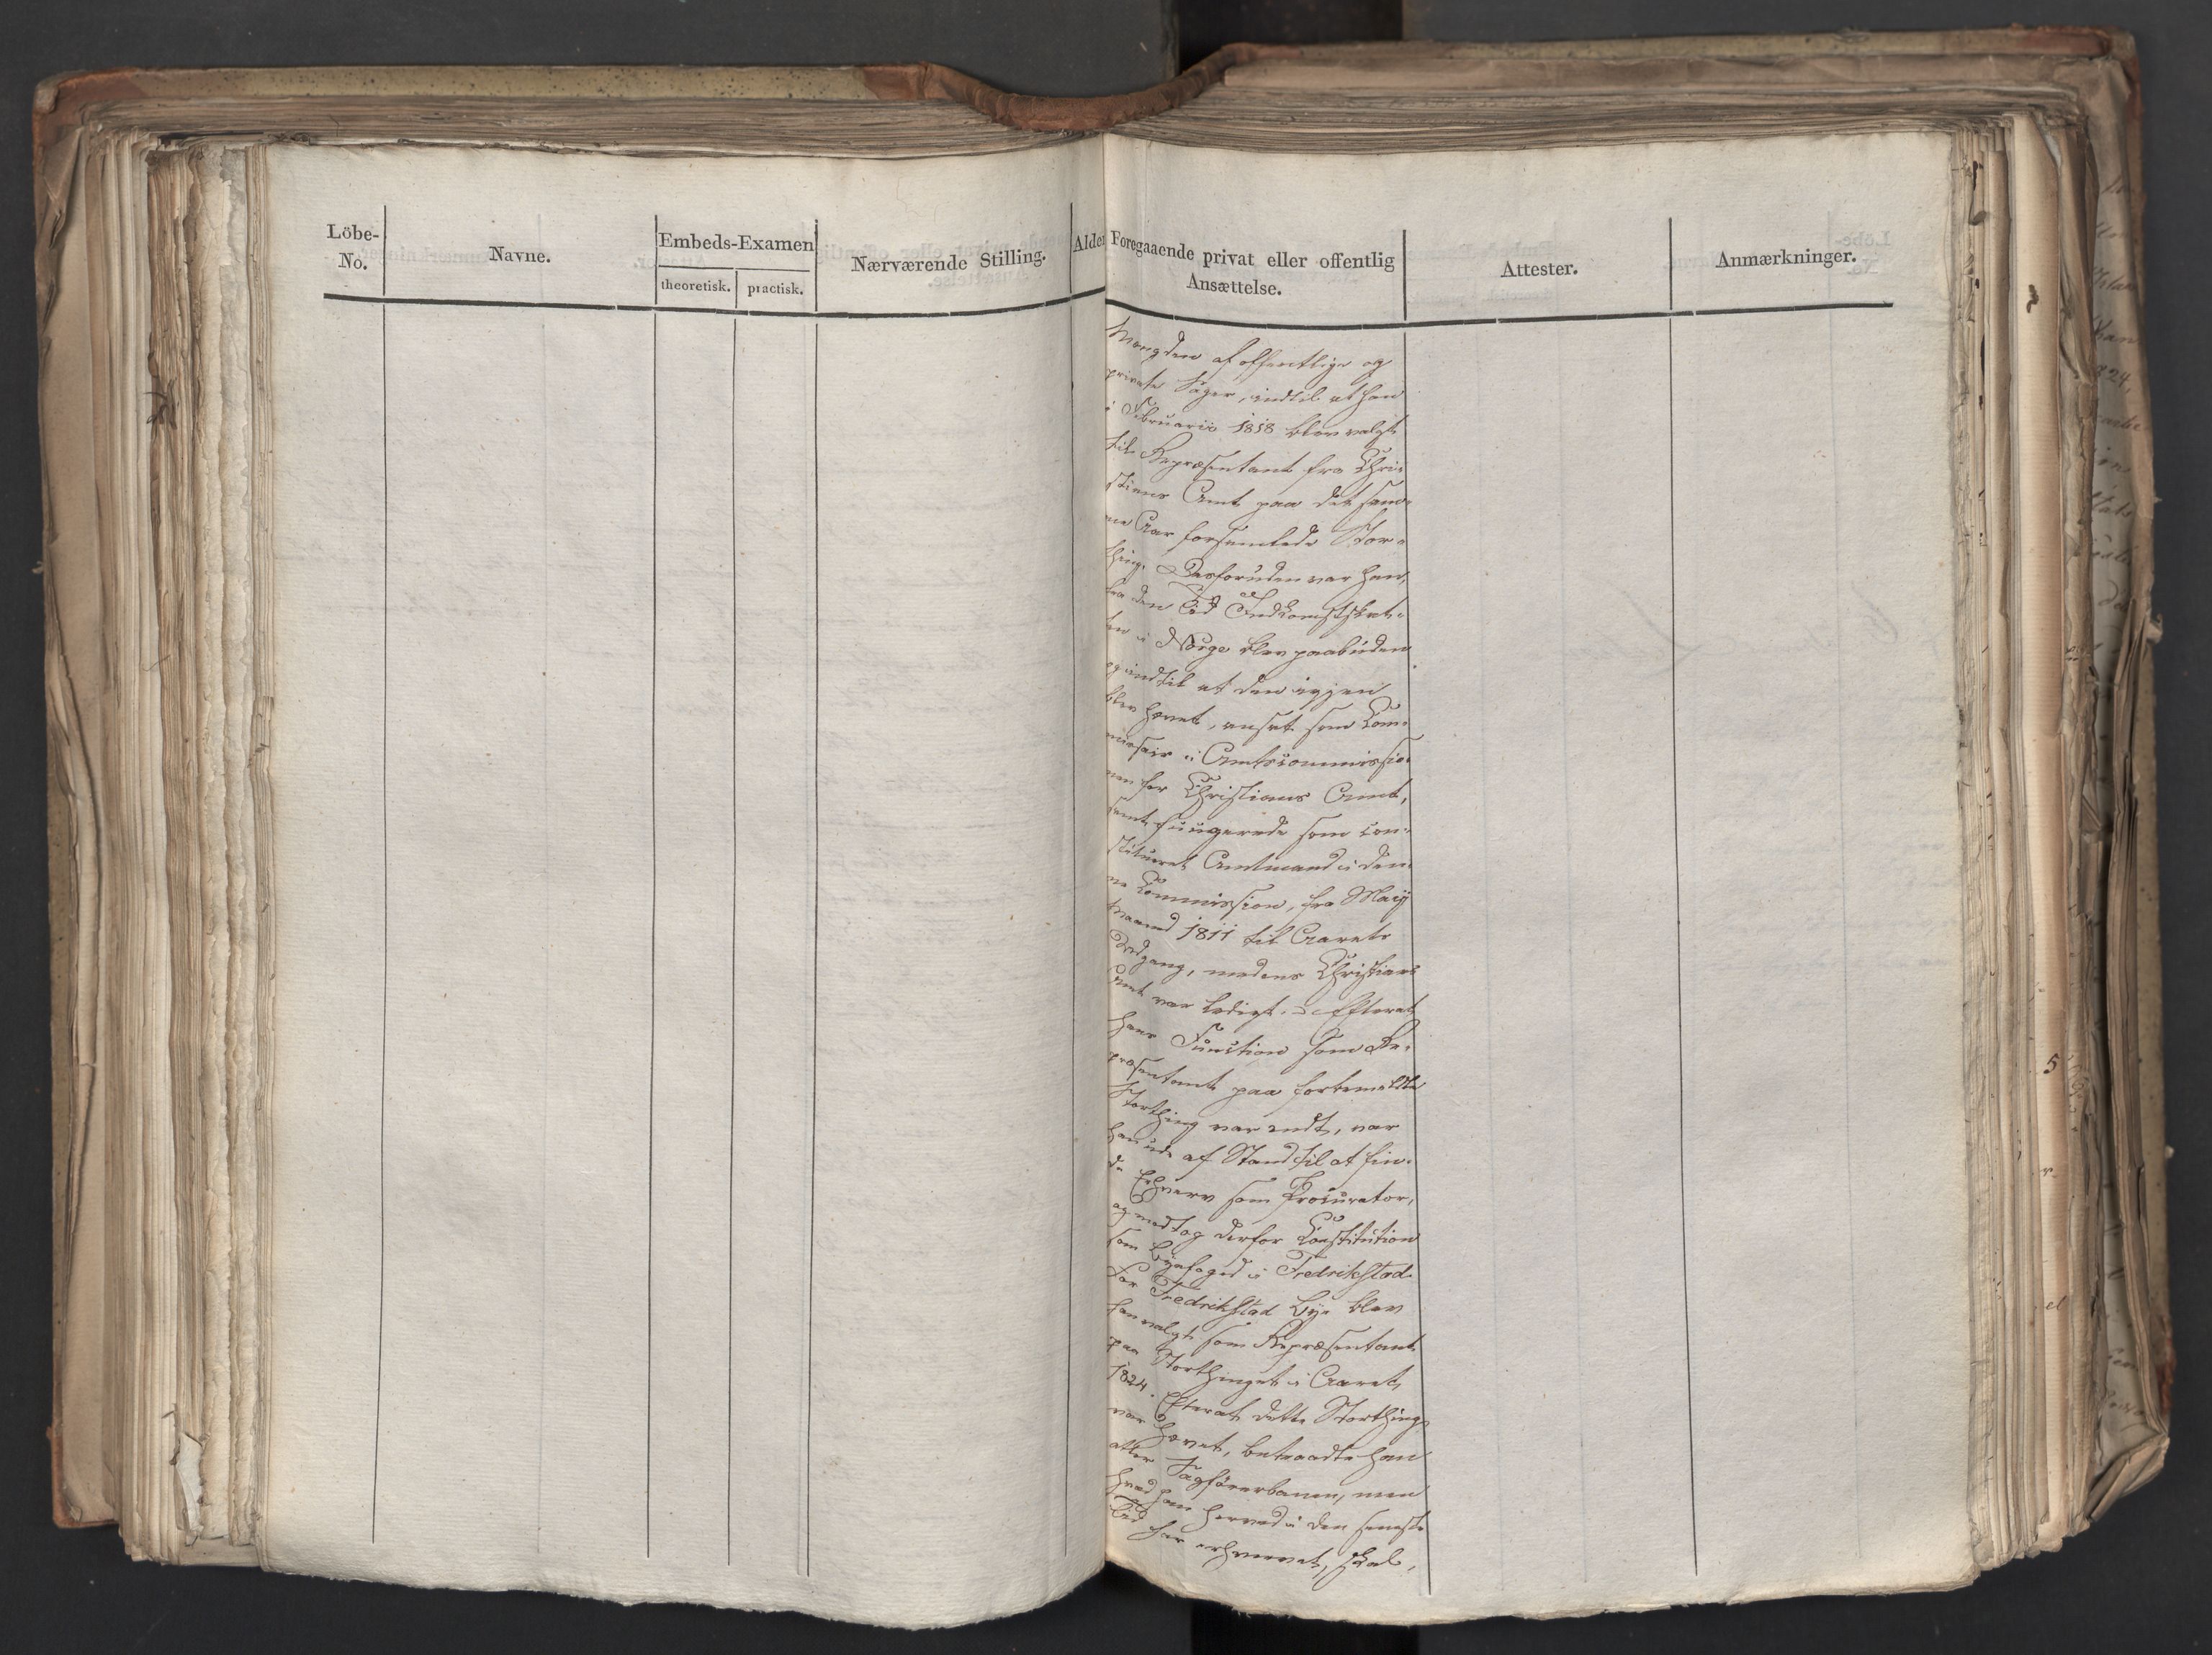 Löbe-
No.
Navne.
Embeds-Examen
theoretisk. practisk.
Nærværende Stilling.
Alder
Foregaaende privat eller offentlig
Ansættelse.
Attester.
Anmærkninger.
Mængden af offentlige og
private Sager, indtil at han
i Februarii 1818 blev valgt
til Repræsentant fra Chri-
stians Amt paa det sam-
me Aar forsamlede Stor-
thing. Desforuden var han,
fra den Tid Indkomstskat-
ten i Norge blev paabuden
og indtil at den igjen
blev hævet, ansat som Com-
missair i Amtscommissio-
nen for Christians Amt,
samt fungerede som con-
stitueret Amtmand i den-
ne Commission, fra Maij
Maaned 1811 til Aarets
Udgang, medens Christians
Amt var ledigt. Efterat
hans Function som Re-
præsentant paa formeldte
Storthing var endt, var
han ude af Stand til at fin-
de Erhverv som Procurator,
og modtog derfor Constitution
som Byefoged i Fredrikstad.
For Fredrikstad Bye blev
han valgt som Repræsentant
paa Storthinget i Aaret
1824. Efterat dette Storthing
var hævet, betraadte han
atter Sagførerbanen, men
hvad han herved i den seneste
Tid har erhvervet, skal,